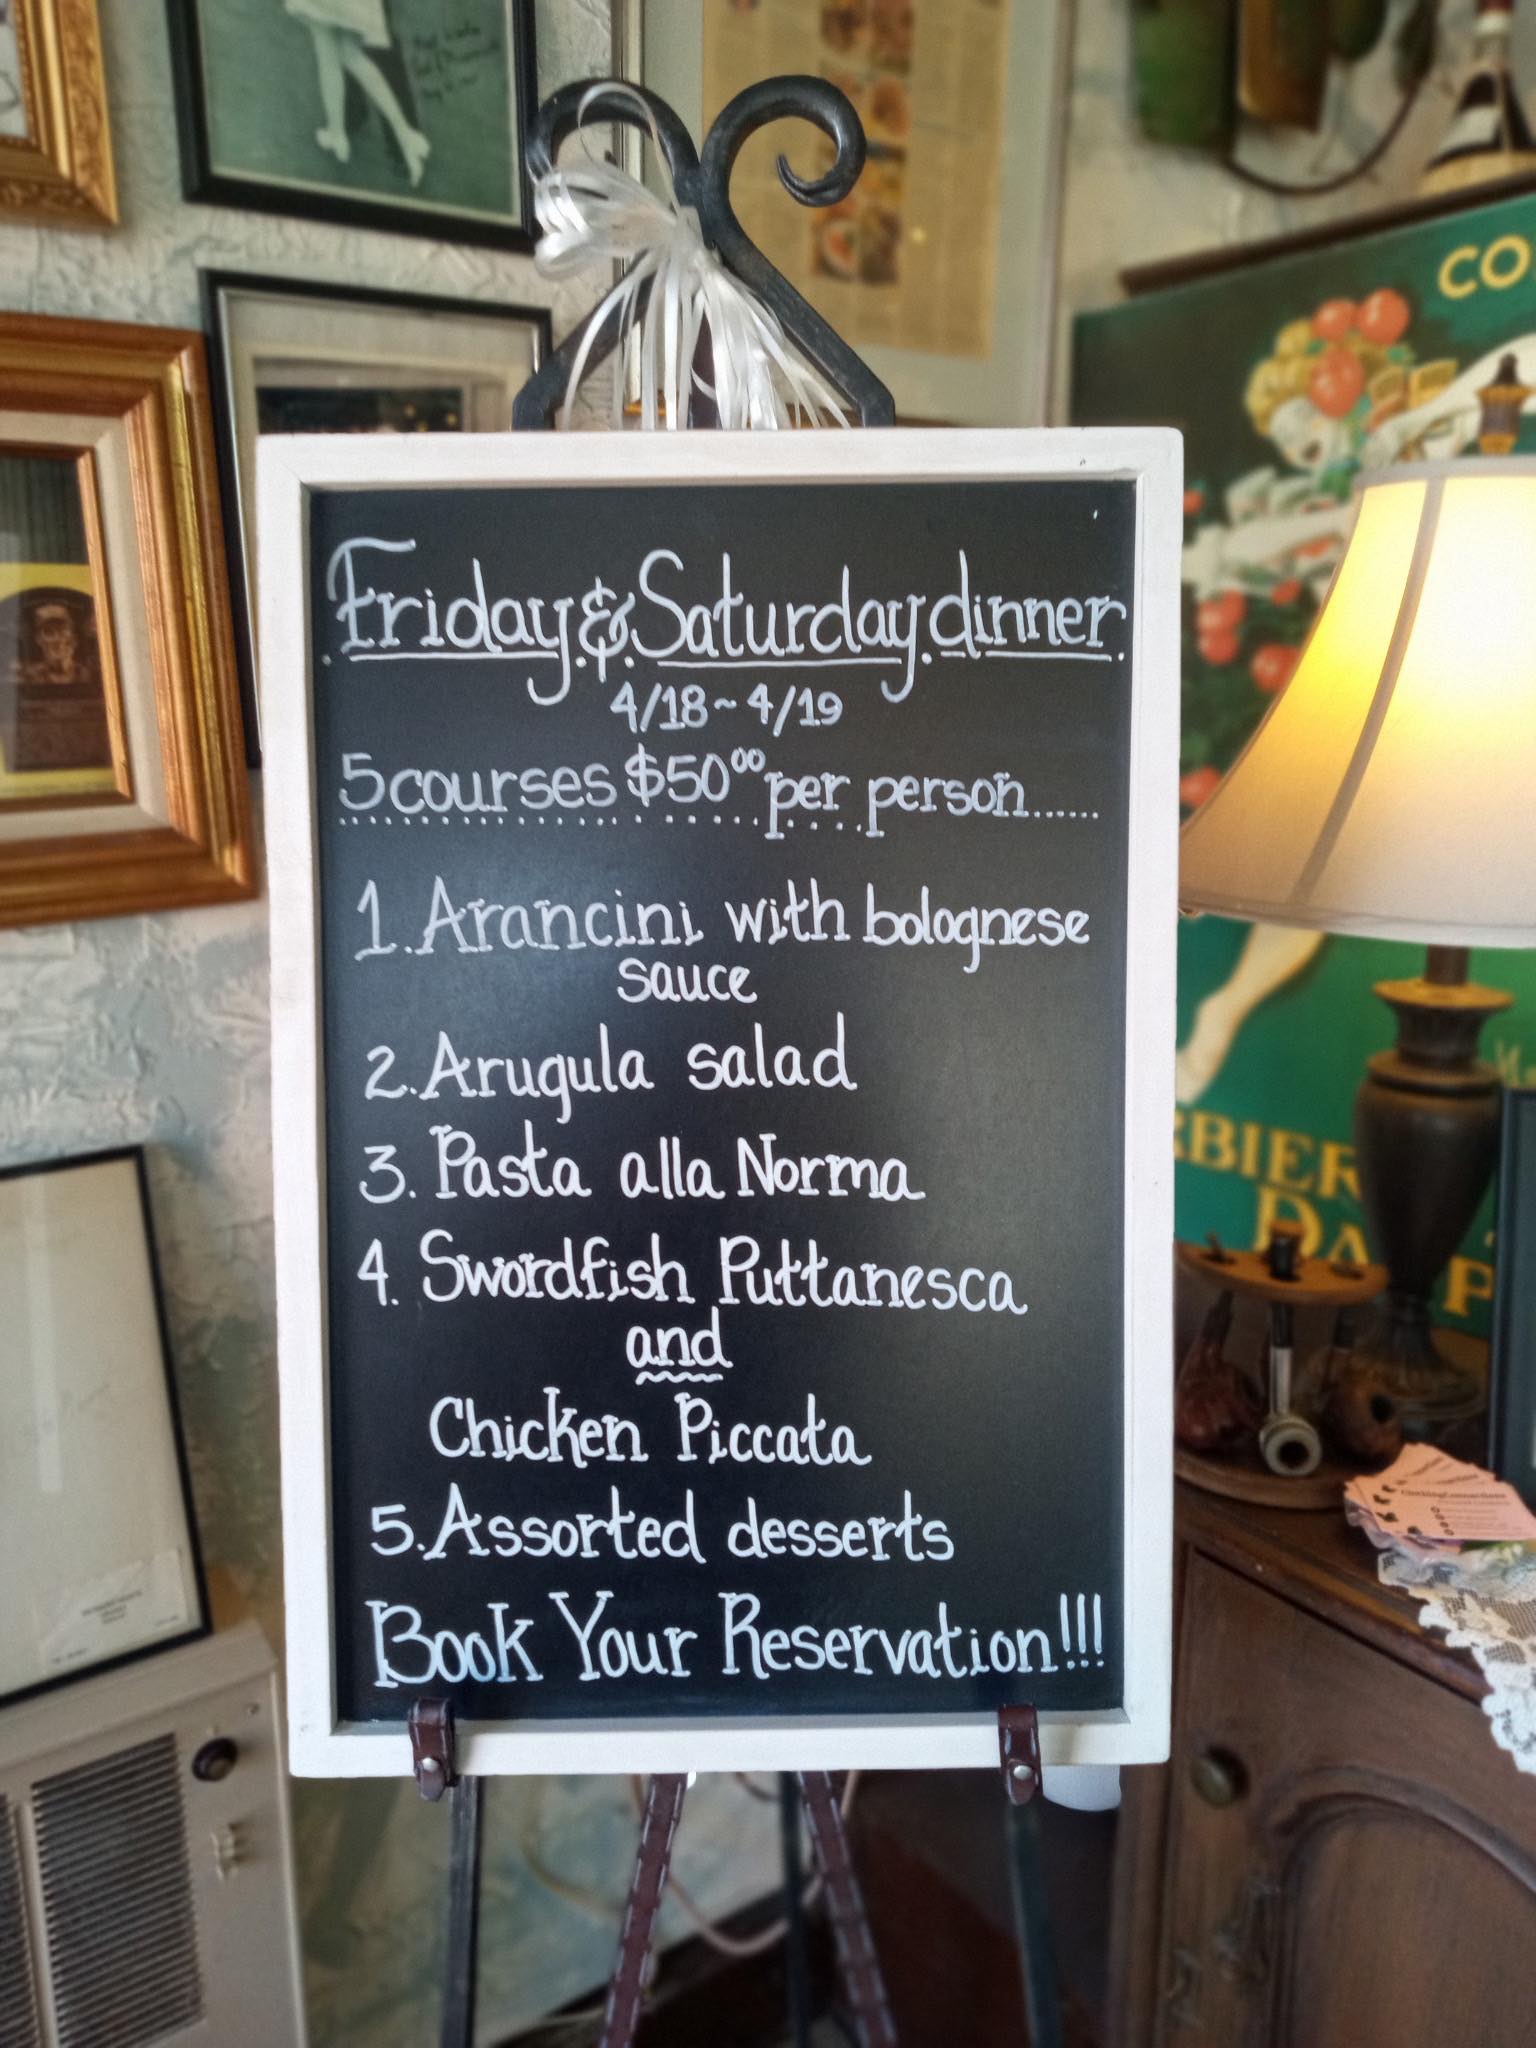 Friday & Saturday dinner
4/18 ~ 4/19
5 courses $50⁰⁰ per person......
1. Arancini with bolognese
sauce
2. Arugula salad
3. Pasta alla Norma
4. Swordfish Puttanesca
and
Chicken Piccata
5. Assorted desserts
Book Your Reservation!!!
CO